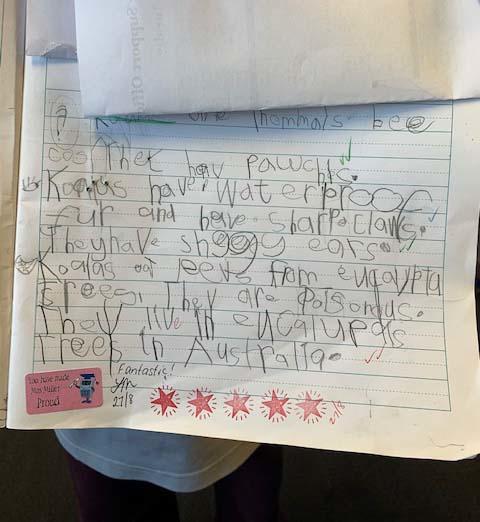 are Mammals bee
cos They hav pawches.
Koalas have Waterproof
fur and have sharp claws.
They have shggy ears.
Koalas eat leevs from eucalypta
trees. They are Poisonous.
They live in eucalupts
Trees in Australia.
Fantastic!
27/8
You have made
Miss Millet
Proud